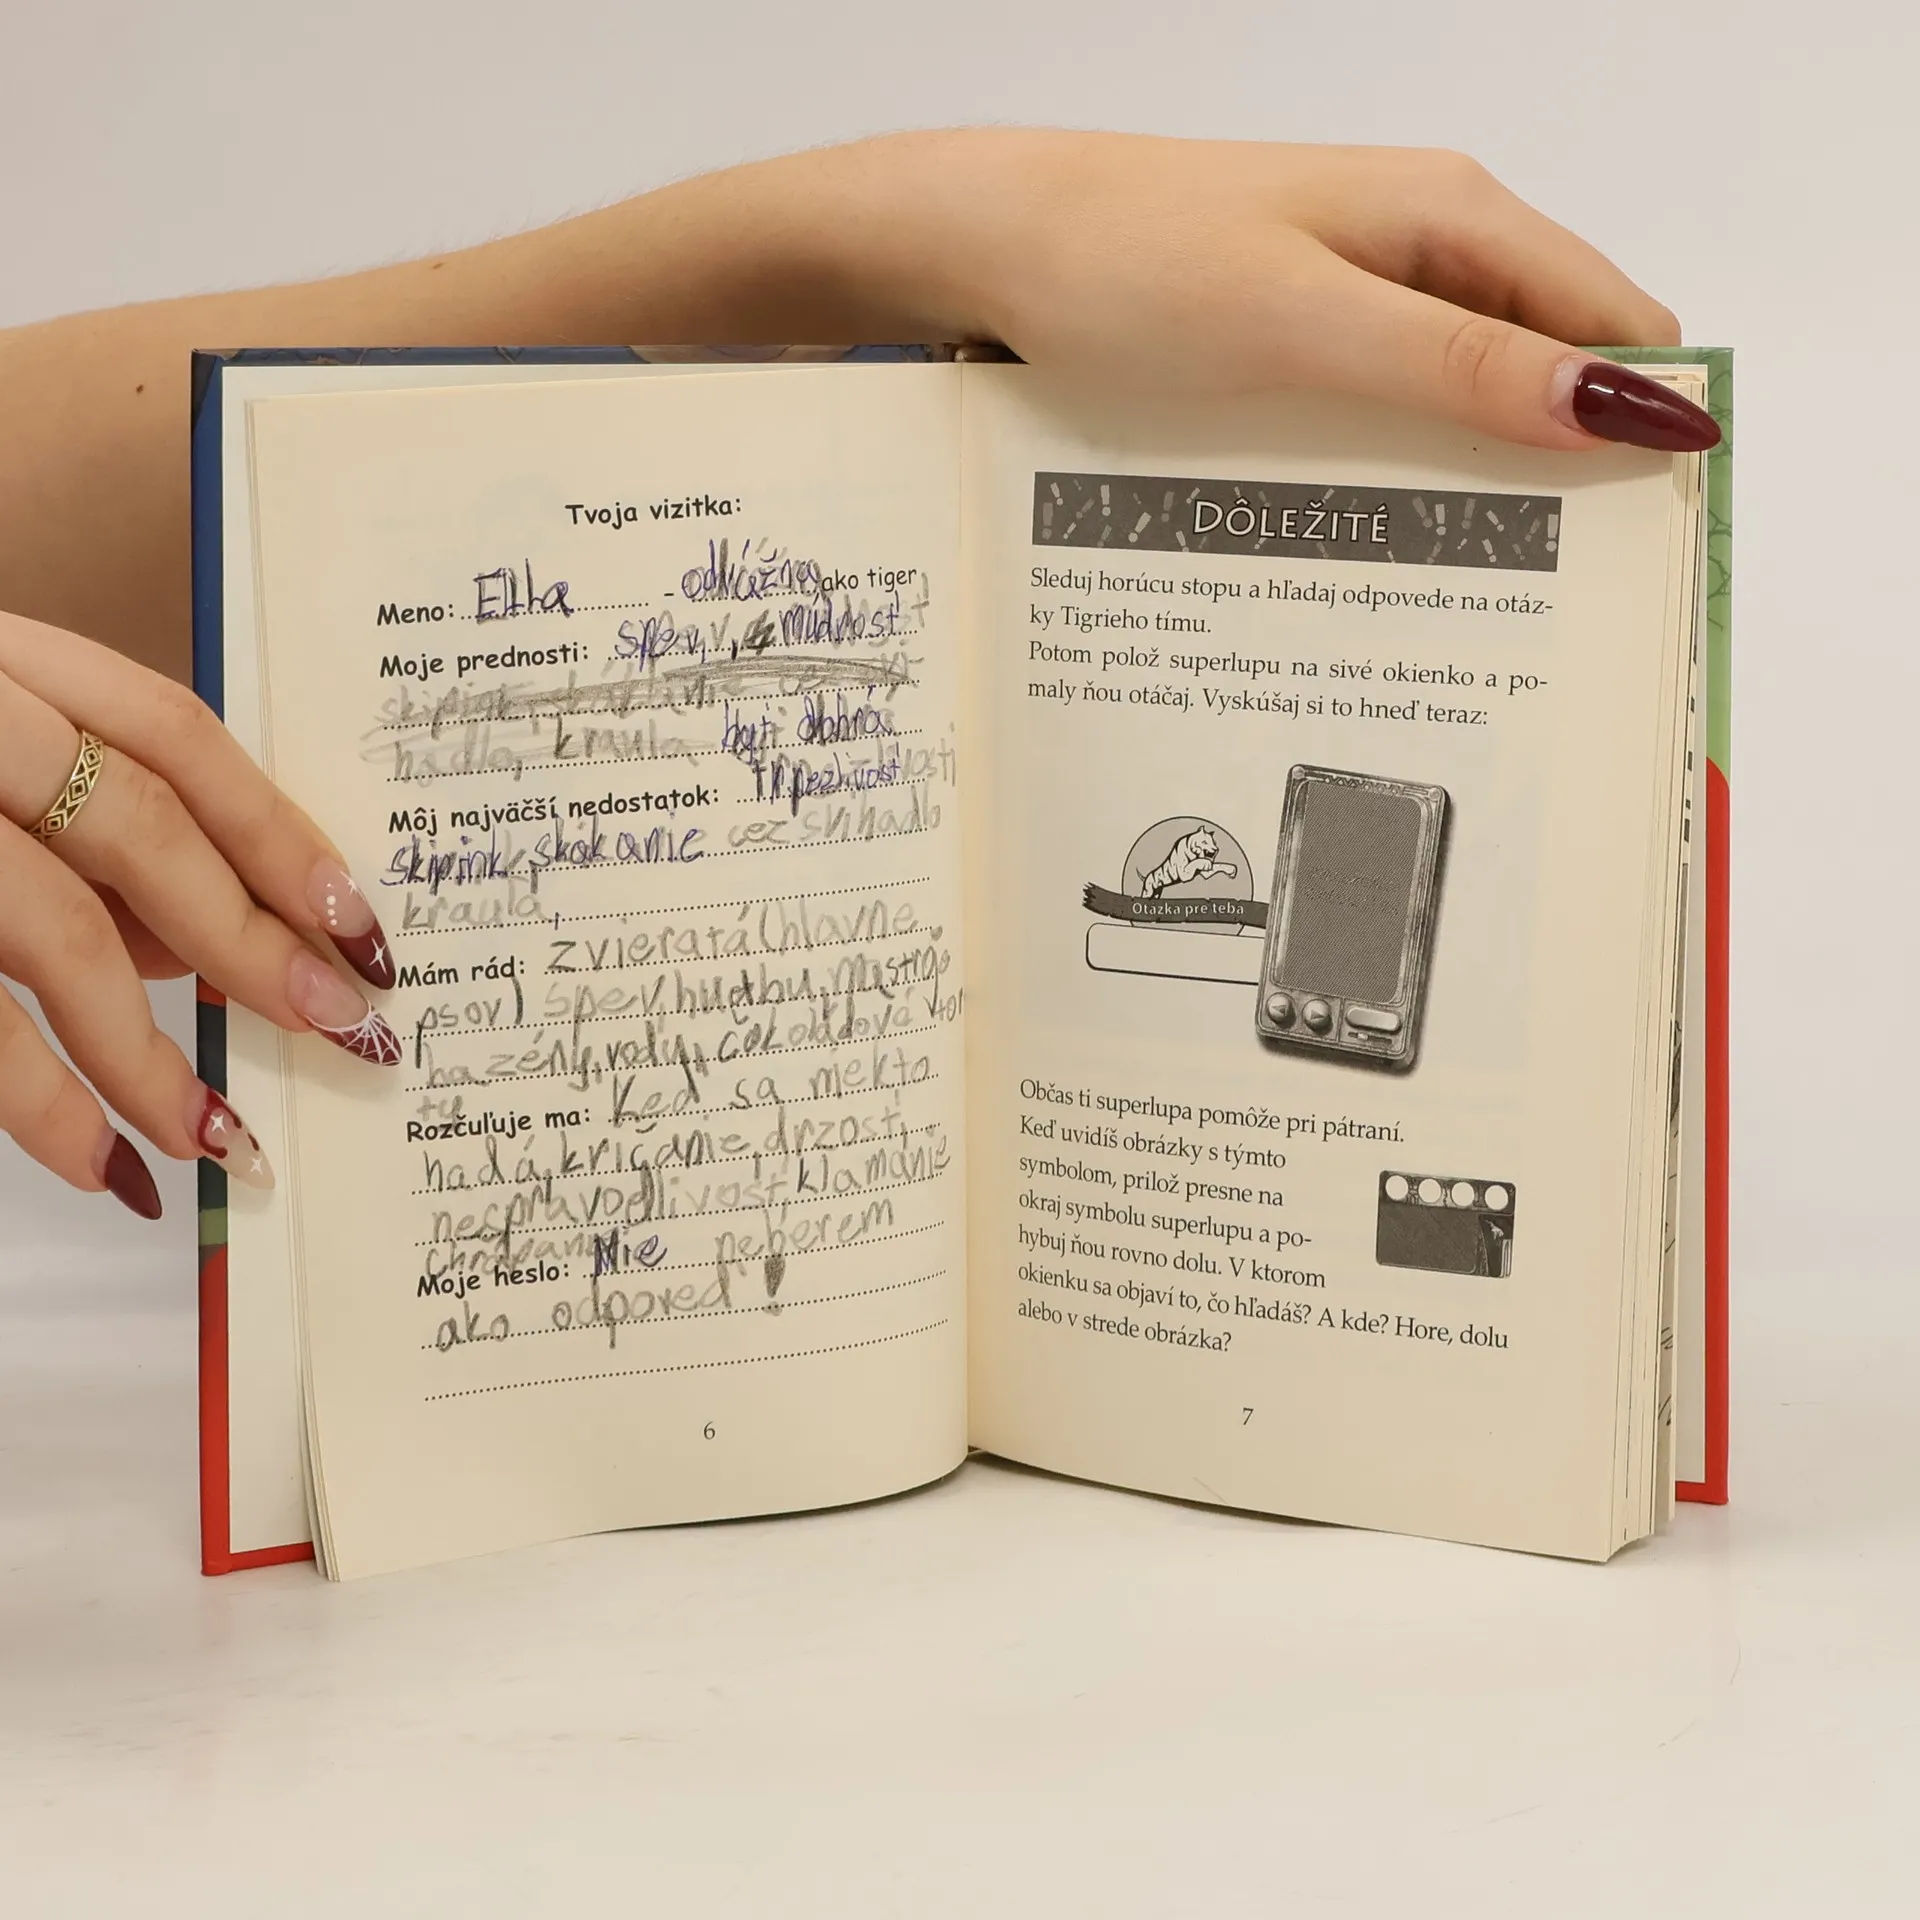 Tvoja vizitka:
Meno: Ella - odvážna ako tiger
Moje prednosti: spev, múdrosť
byť dobrá
Môj najväčší nedostatok: trpezlivosť
skipink, skákanie cez švihadlo
kraula,
Mám rád: zvieratá (hlavne
psov) spev, hudbu,
bazény, vodu, čokoládová tor
ty
Rozčuľuje ma: Keď sa niekto
hadá, kričanie, drzosť,
nespravodlivosť, klamanie
chrápanie
Moje heslo: Nie neberem
ako odpoveď!
6
DÔLEŽITÉ
Sleduj horúcu stopu a hľadaj odpovede na otáz-
ky Tigrieho tímu.
Potom polož superlupu na sivé okienko a po-
maly ňou otáčaj. Vyskúšaj si to hneď teraz:
Otázka pre teba
Občas ti superlupa pomôže pri pátraní.
Keď uvidíš obrázky s týmto
symbolom, prilož presne na
okraj symbolu superlupu a po-
hybuj ňou rovno dolu. V ktorom
okienku sa objaví to, čo hľadáš? A kde? Hore, dolu
alebo v strede obrázka?
7